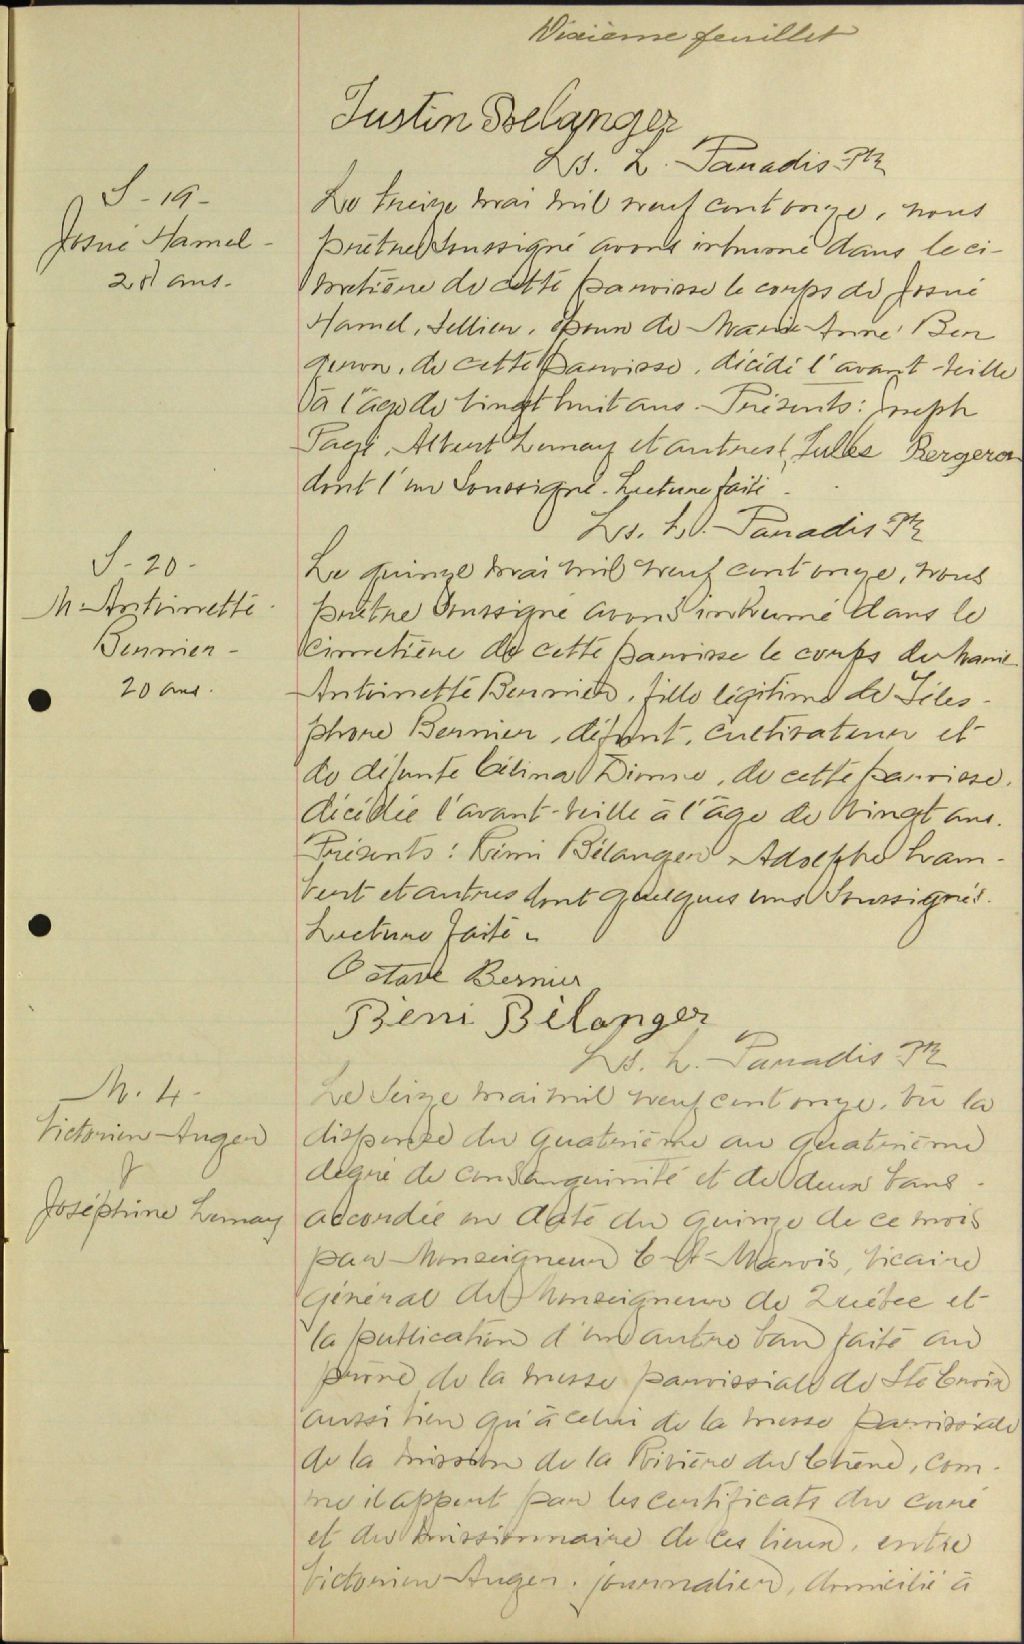 Dixième feuillet
Justin Belanger
Ls. L. Paradis Ptr
S - 19 -
Josué Hamel -
28 ans.
Le treize mai mil neuf cent onze, nous
prêtre soussigné avons inhumé dans le ci-
metière de cette paroisse le corps de Josué
Hamel, sellier, époux de Marie-Anne Ber
geron, de cette paroisse, décédé l'avant-veille
à l'âge de vingt huit ans. Présents: Joseph
Pagé, Albert Lemay et autres Jules Bergeron
dont l'un soussigné. Lecture faite.
Ls. L. Paradis Ptr
S - 20 -
M-Antoinette
Bernier -
20 ans.
Le quinze mai mil neuf cent onze, nous
prêtre soussigné avons inhumé dans le
cimetière de cette paroisse le corps de Marie
Antoinette Bernier, fille légitime de Téles-
phore Bernier, défunt, cultivateur et
de défunte Célina Dionne, de cette paroisse,
décédée l'avant-veille à l'âge de vingt ans.
Présents: Rémi Bélanger, Adolphe Lam-
bert et autres dont quelques uns soussignés.
Lecture faite.
Octave Bernier
Rémi Bélanger
Ls. L. Paradis Ptr
M. 4 -
Victorien Auger
&
Joséphine Lemay
Le seize mai mil neuf cent onze, vu la
dispense du quatrième au quatrième
degré de consanguinité et de deux bans
accordée en date du quinze de ce mois
par Monseigneur C-A-Marois, vicaire
général de Monseigneur de Québec et
la publication d'un autre ban faite au
prône de la messe paroissiale de Ste Croix
aussi bien qu'à celui de la messe paroissiale
de la mission de la Rivière du Chêne, com-
me il appert par les certificats du curé
et du missionnaire de ces lieux, entre
Victorien Auger, journalier, domicilié à